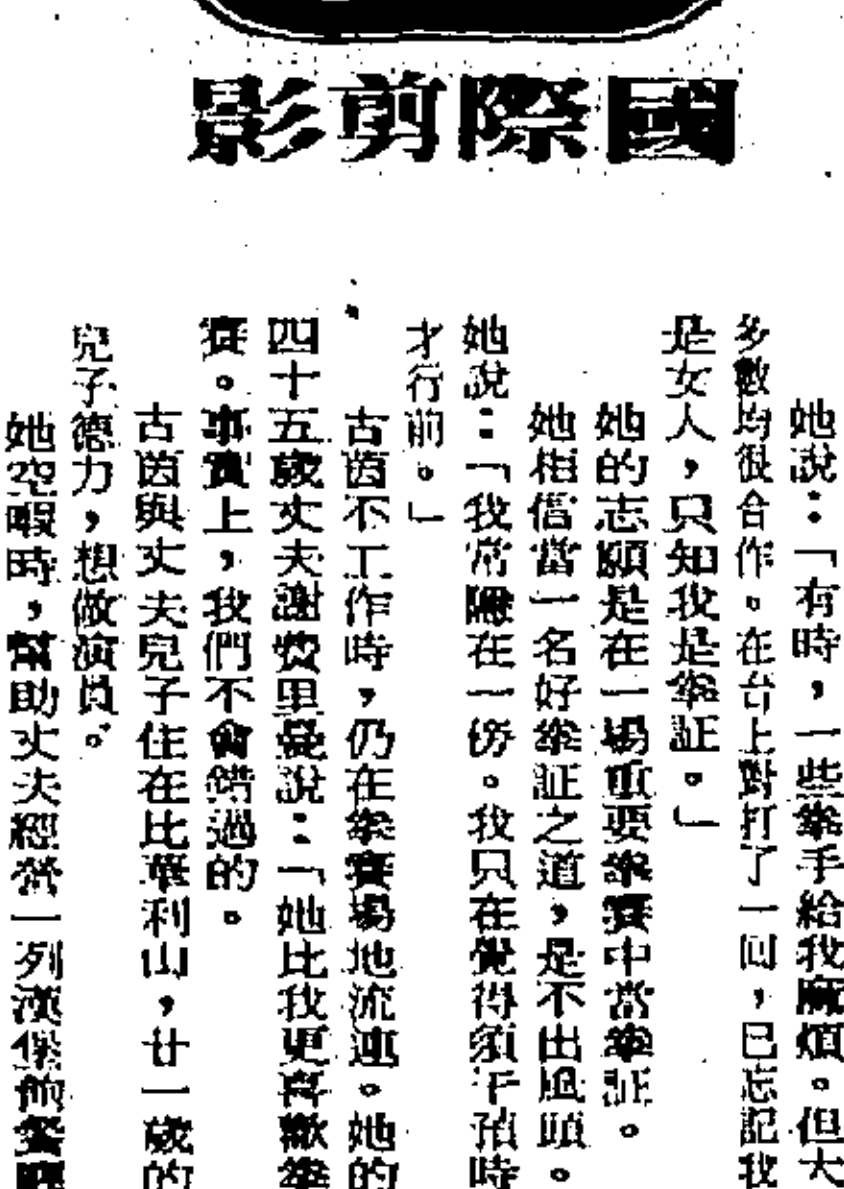 國際剪影
她說：「有時，一些拳手給我麻煩。但大
多數均很合作。在台上對打了一回，已忘記我
是女人，只知我是拳証。」
她的志願是在一場重要拳賽中當拳証。
她相信當一名好拳証之道，是不出風頭。
她說：「我常隱在一傍。我只在覺得須干預時
才行前。」
古茵不工作時，仍在拳賽場地流連。她的
四十五歲丈夫謝費里曼說：「她比我更喜歡拳
賽。事實上，我們不會錯過的。
古茵與丈夫兒子住在比華利山，廿一歲的
兒子德力，想做演員。
她空暇時，幫助丈夫經營一列漢堡飽餐廳